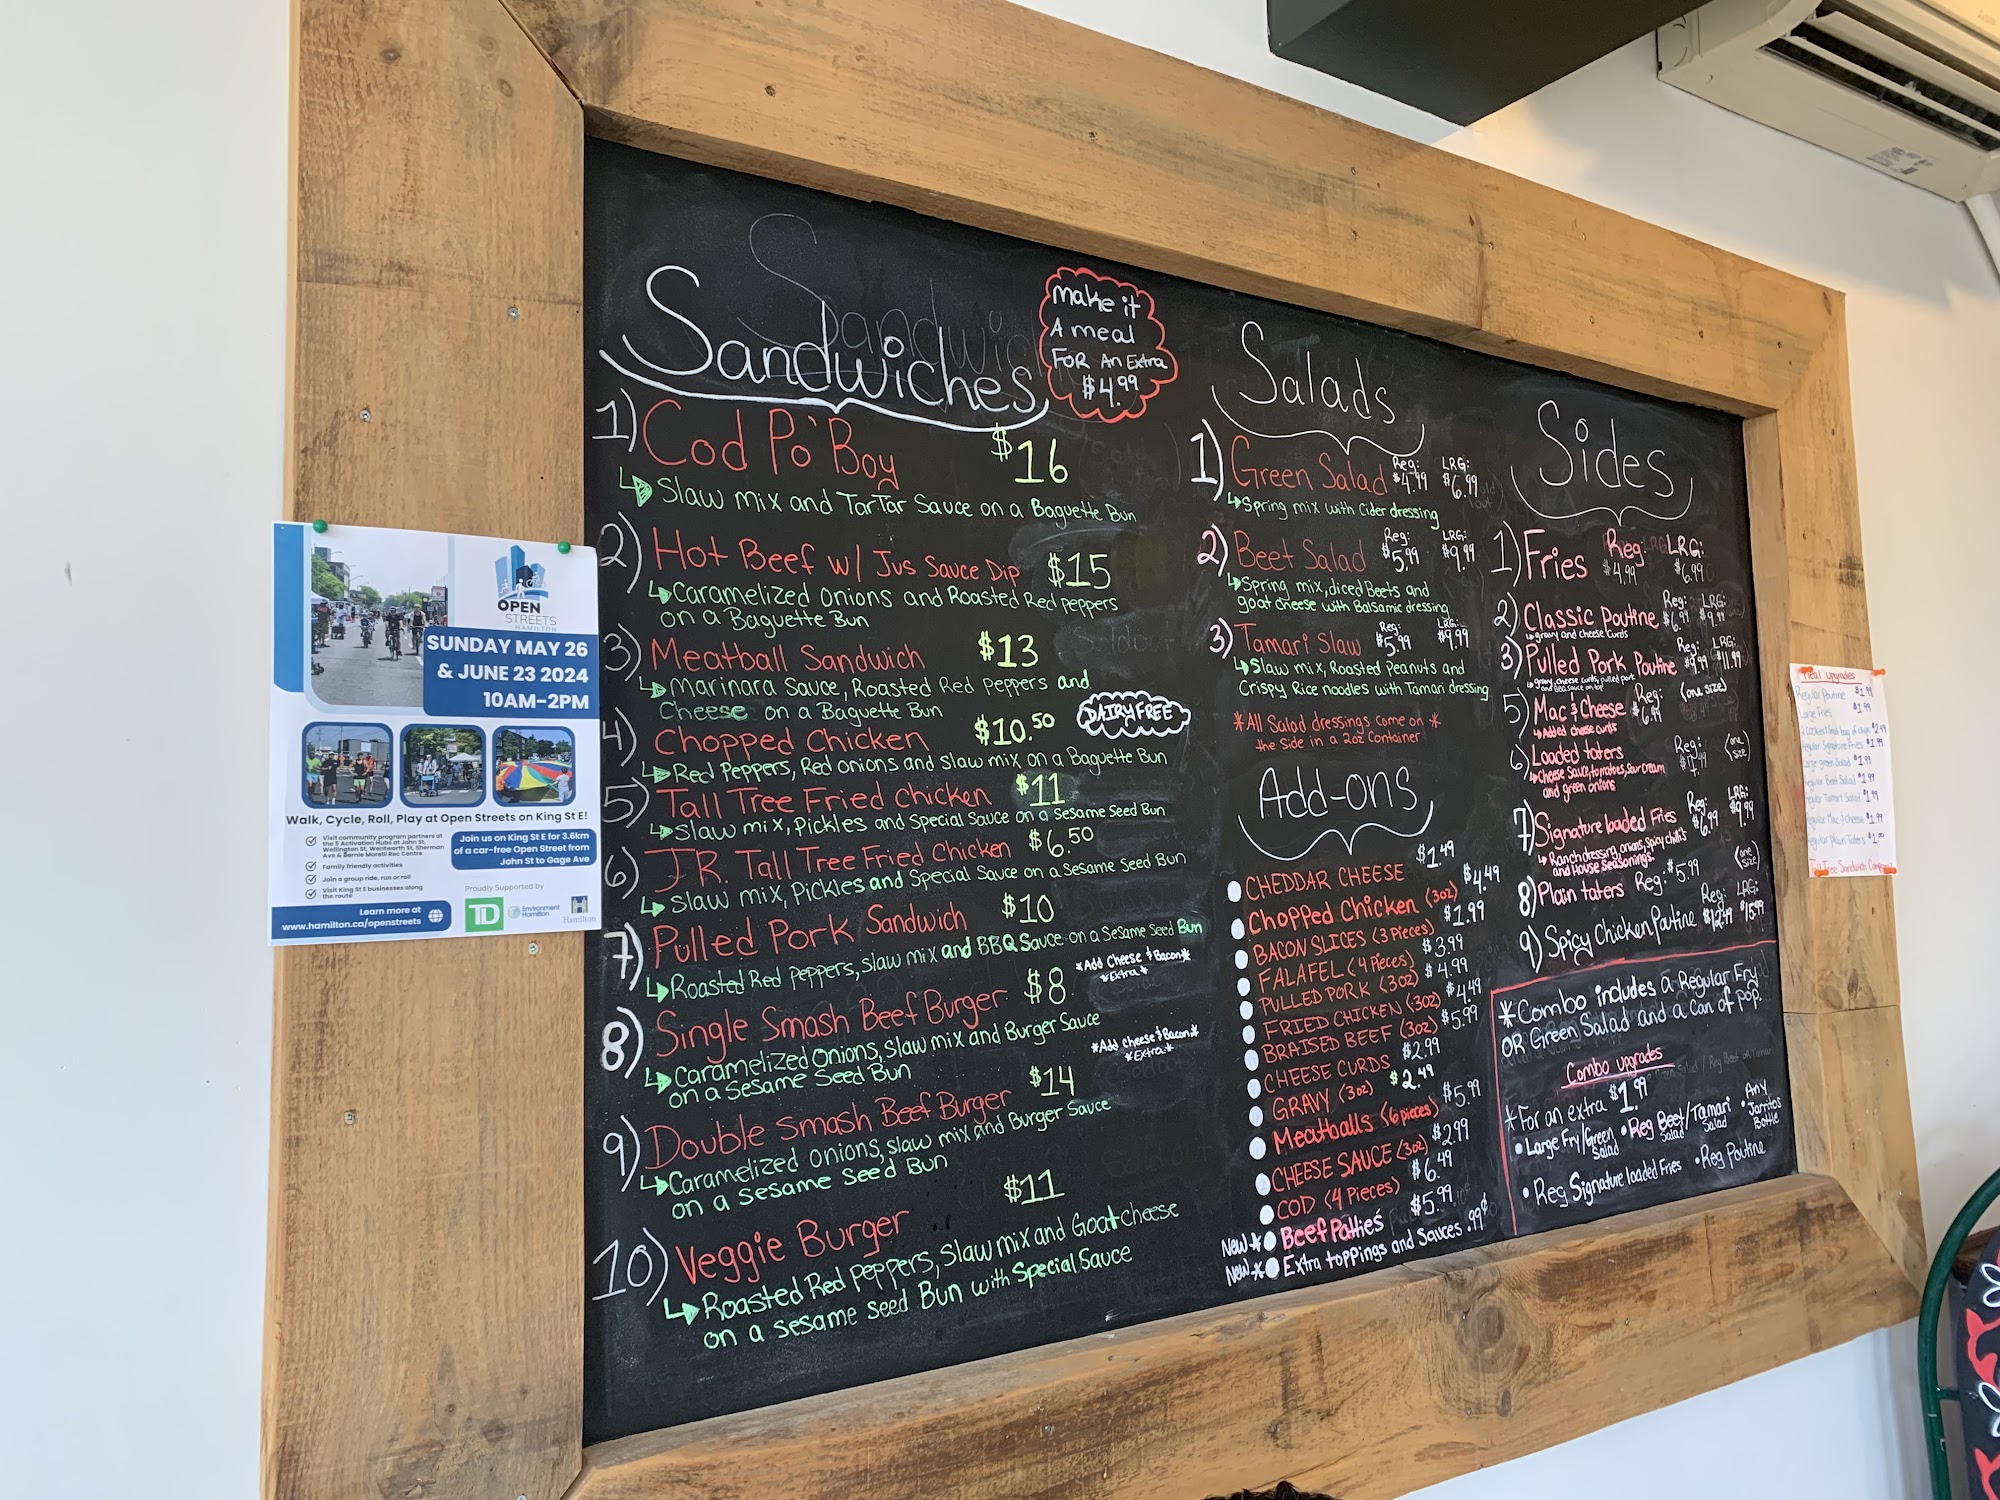 OPEN
STREETS
HAMILTON
SUNDAY MAY 26
& JUNE 23 2024
10AM-2PM
Walk, Cycle, Roll, Play at Open Streets on King St E!
Visit community program partners at
the 5 Activation Hubs at John St,
Wellington St, Wentworth St, Sherman
Ave & Bernie Morelli Rec Centre
Family friendly activities
Join a group ride, run or roll
Visit King St E businesses along
the route
Join us on King St E for 3.6km
of a car-free Open Street from
John St to Gage Ave
Learn more at
www.hamilton.ca/openstreets
Proudly Supported by
TD
Environment
Hamilton
Hamilton
Sandwiches
Make it
A meal
FOR An Extra
$4.99
1) Cod Po'Boy $16
Slaw mix and TarTar Sauce on a Baguette Bun
2) Hot Beef w/ Jus Sauce Dip $15
Caramelized onions and Roasted Red peppers
on a Baguette Bun
3) Meatball Sandwich $13
Marinara Sauce, Roasted Red Peppers and
Cheese on a Baguette Bun
4) Chopped Chicken $10.50 DAIRY FREE
Red Peppers, Red onions and slaw mix on a Baguette Bun
5) Tall Tree Fried Chicken $11
Slaw mix, Pickles and Special Sauce on a Sesame Seed Bun
6) J.R. Tall Tree Fried Chicken $6.50
Slaw mix, Pickles and Special Sauce on a Sesame Seed Bun
7) Pulled Pork Sandwich $10
Roasted Red peppers, slaw mix and BBQ Sauce on a Sesame Seed Bun
8) Single Smash Beef Burger $8 *Add Cheese & Bacon*
*Extra*
Caramelized onions, Slaw mix and Burger Sauce
on a Sesame Seed Bun
9) Double Smash Beef Burger $14 *Add cheese & Bacon*
*Extra*
Caramelized onions, slaw mix and Burger Sauce
on a sesame Seed Bun
10) Veggie Burger $11
Roasted Red Peppers, Slaw mix and Goat cheese
on a sesame seed Bun with Special Sauce
Salads
1) Green Salad Reg: $4.99 LRG: $6.99
Spring mix with Cider dressing
2) Beet Salad Reg: $5.99 LRG: $9.99
Spring mix, diced Beets and
goat cheese with Balsamic dressing
3) Tamari Slaw Reg: $5.99 LRG: $9.99
Slaw mix, Roasted Peanuts and
Crispy Rice noodles with Tamari dressing
*All Salad dressings come on *
the Side in a 2oz Container
Add-ons
CHEDDAR CHEESE $1.49
Chopped Chicken (3oz) $4.49
BACON SLICES (3 Pieces) $1.99
FALAFEL (4 Pieces) $3.99
PULLED PORK (3oz) $4.99
FRIED CHICKEN (3oz) $4.49
BRAISED BEEF (3oz) $5.99
CHEESE CURDS $2.99
GRAVY (3oz) $2.49
Meatballs (6 pieces) $5.99
CHEESE SAUCE (3oz) $2.99
COD (4 Pieces) $6.49
New* Beef Patties $5.99
New* Extra toppings and Sauces .99¢
Sides
1) Fries Reg: $4.99 LRG: $6.99
2) Classic Poutine Reg: $6.99 LRG: $9.99
gravy and cheese curds
3) Pulled Pork Poutine Reg: $9.99 LRG: $11.99
gravy, cheese curds, pulled pork
and BBQ sauce on top
5) Mac & Cheese Reg: $6.99 (one size)
Added cheese curds
6) Loaded taters Reg: (one size)
Cheese Sauce, tomatoes, Sour cream
and green onions
7) Signature loaded Fries Reg: $6.99 LRG: $9.99
Ranch dressing, onions, Spicy chilli's
and House Seasonings.
8) Plain taters Reg: $5.99 (one size)
9) Spicy Chicken Poutine Reg: $12.49 LRG: $15.99
*Combo includes a Regular Fry
OR Green Salad and a Can of Pop.
Combo upgrades
*For an extra $1.99
• Large Fry/Green Salad • Reg Beet/Tamari Salad • Any Jarritos Bottle
• Reg Signature loaded Fries • Reg Poutine
Meal upgrades
Regular Poutine $1.99
Large Fries $1.99
Regular Signature Fries $1.99
Large green Salad $1.99
Regular Beet Salad $1.99
Regular Tamari Salad $1.99
Regular Mac & Cheese $1.99
Regular Plain Taters